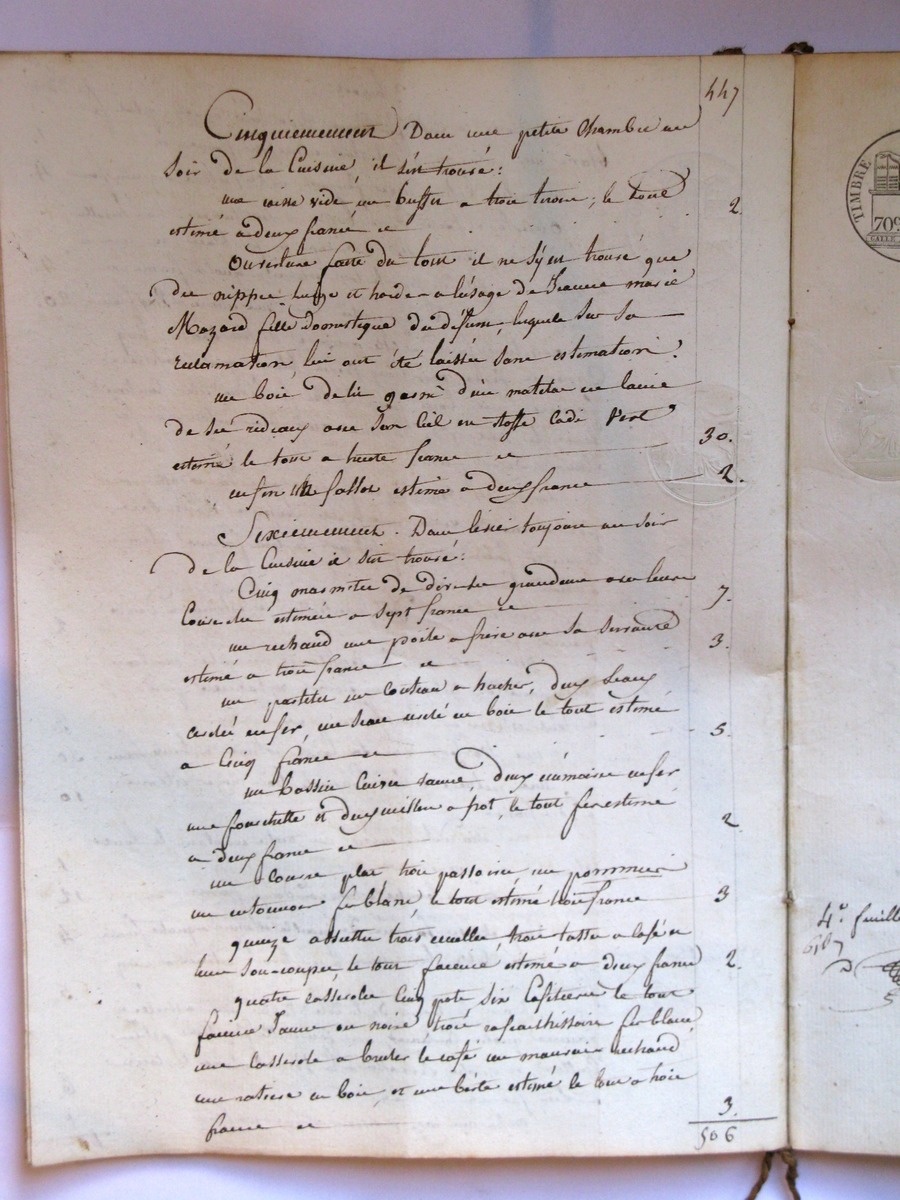 447
Cinquiemement Dans une petite Chambre au
soir de la Cuisine, il s'est trouvé:
une caisse vide un buffet a trois tiroirs, le tout
estimé a deux francs 2.
Ouverture faite du tout il ne s'y est trouvé que
des nippes linge et hardes a l'usage de Jeanne marie
Mazard fille domestique du défunt, lequels sur sa
reclamation, lui ont été laissés sans estimation.
un bois de lit garni d'un matelas en laine
de ses rideaux avec son Ciel en etoffe Cadi Vert
estimé le tout a trente francs 30.
enfin un fallot estimé a deux francs 2.
Sixiemement. Dans toujours au soir
de la Cuisine il s'est trouvé:
Cinq marmites de diverses grandeurs avec leurs
Couvercles estimées a sept francs 7.
un rechaud une poile a frire avec sa
estimé a trois francs 3.
un un Couteau a hacher, deux seaux
cerclés en fer, un seau cerclé en bois le tout estimé
a Cinq francs 5.
un bassin Cuivre jaune, deux en fer
une fourchette et deux a pot, le tout fer estimé
a deux francs 2.
un Couvre plat trois passoires un pommier
un entonnoir fer blanc le tout estimé trois francs 3
quinze assiettes trois ecuelles, trois tasses a café et
leurs sou-coupes, le tout faience estimé a deux francs 2.
quatre casseroles Cinq pots six Caffetieres le tout
faience Jaune ou noire trois rafraichissoirs fer blanc
une Casserole a bruler le café un mauvais rechaud
une ratiere en bois, et une estimé le tout a trois
francs 3.
506
TIMBRE
709
4e feuille